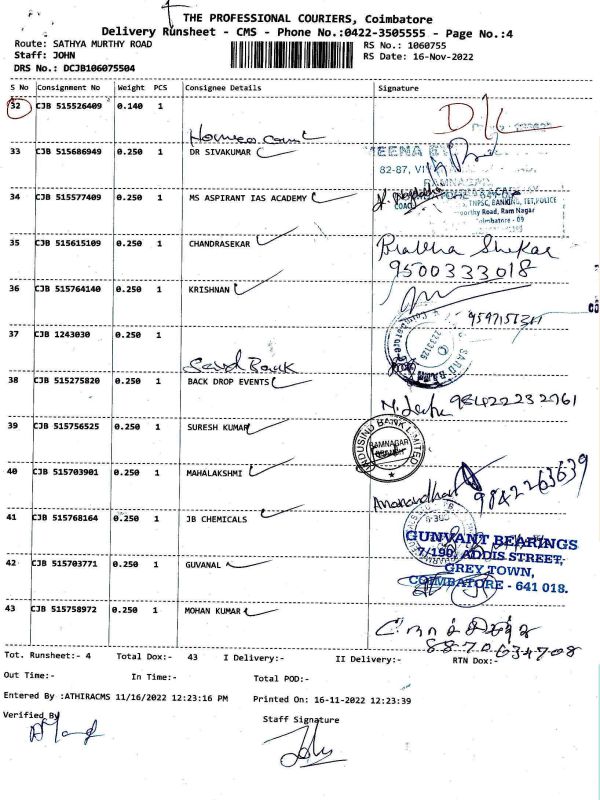 THE PROFESSIONAL COURIERS, Coimbatore
Delivery Runsheet - CMS - Phone No.:0422-3505555 - Page No.:4
Route: SATHYA MURTHY ROAD RS No.: 1060755
Staff: JOHN RS Date: 16-Nov-2022
DRS No.: DCJB106075504
S No Consignment No Weight PCS Consignee Details Signature
32 CJB 515526409 0.140 1
33 CJB 515686949 0.250 1 DR SIVAKUMAR
82-87,
34 CJB 515577409 0.250 1 MS ASPIRANT IAS ACADEMY
TNPSC, BANKING, TET,POLICE
Road, Ram Nagar
Coimbatore - 09
35 CJB 515615109 0.250 1 CHANDRASEKAR Prabha Shekar
9500333018
36 CJB 515764140 0.250 1 KRISHNAN
37 CJB 1243030 0.250 1
Bank
38 CJB 515275820 0.250 1 BACK DROP EVENTS
39 CJB 515756525 0.250 1 SURESH KUMAR
HOUSING BANK LIMITED
RAMNAGAR
BRANCH
40 CJB 515703901 0.250 1 MAHALAKSHMI 9842263639
41 CJB 515768164 0.250 1 JB CHEMICALS
GUNVANT BEARINGS
7/190, ADDIS STREET,
42 CJB 515703771 0.250 1 GUVANAL GREY TOWN,
COIMBATORE - 641 018.
43 CJB 515758972 0.250 1 MOHAN KUMAR
8870634708
Tot. Runsheet:- 4 Total Dox:- 43 I Delivery:- II Delivery:- RTN Dox:-
Out Time:- In Time:- Total POD:-
Entered By :ATHIRACMS 11/16/2022 12:23:16 PM Printed On: 16-11-2022 12:23:39
Verified By Staff Signature
John